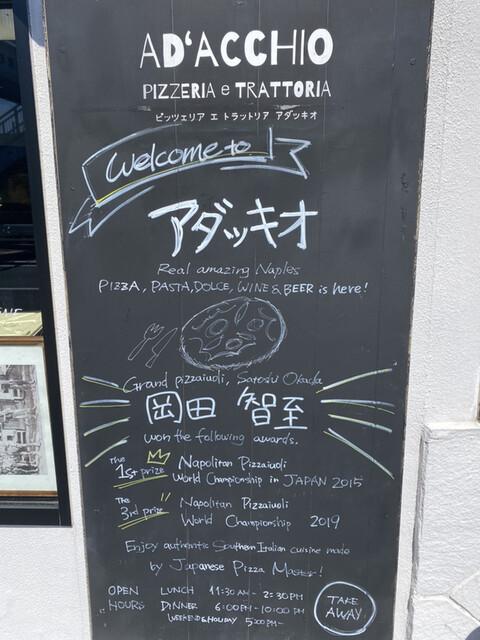 AD'ACCHIO
PIZZERIA e TRATTORIA
ピッツェリア エ トラットリア アダッキオ
Welcome to
アダッキオ
Real amazing Naples
PIZZA, PASTA, DOLCE, WINE & BEER is here!
Grand pizzaiuoli, Satoshi Okada
岡田 智至
won the following awards.
The
1st prize Napolitan Pizzaiuoli
World Championship in JAPAN 2015
The
3rd prize Napolitan Pizzaiuoli
World Championship 2019
Enjoy authentic Southern Italian cuisine made
by Japanese Pizza Master!
OPEN HOURS
LUNCH 11:30 AM - 2:30 PM
DINNER 6:00 PM - 10:00 PM
WEEKEND & HOLIDAY 5:00 PM -
TAKE AWAY